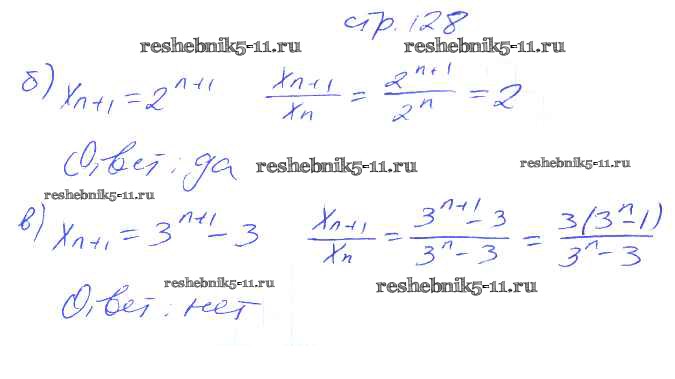 стр. 128
reshebnik5-11.ru reshebnik5-11.ru
б) xₙ₊₁ = 2ⁿ⁺¹ xₙ₊₁/xₙ = 2ⁿ⁺¹/2ⁿ = 2
Ответ: да reshebnik5-11.ru reshebnik5-11.ru
reshebnik5-11.ru
в) xₙ₊₁ = 3ⁿ⁺¹ - 3 xₙ₊₁/xₙ = (3ⁿ⁺¹ - 3)/(3ⁿ - 3) = 3(3ⁿ - 1)/(3ⁿ - 3)
reshebnik5-11.ru reshebnik5-11.ru
Ответ: нет